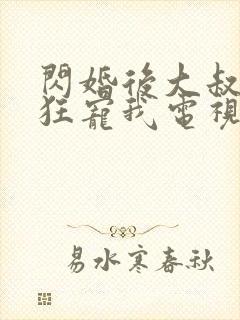 閃婚後大叔
狂寵我電視
易水寒春秋